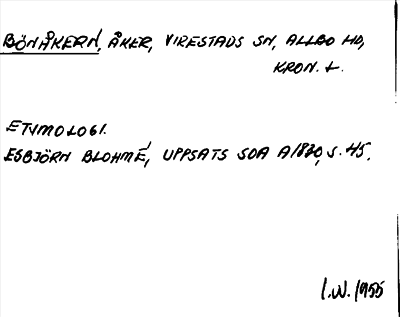 BÖNÅKERN, ÅKER, VIRESTADS SN, ALLBO HD,
KRON. L.
ETYMOLOGI.
ESBJÖRN BLOHMÉ, UPPSATS SOA A1830, S. 45.
I.W. 1955